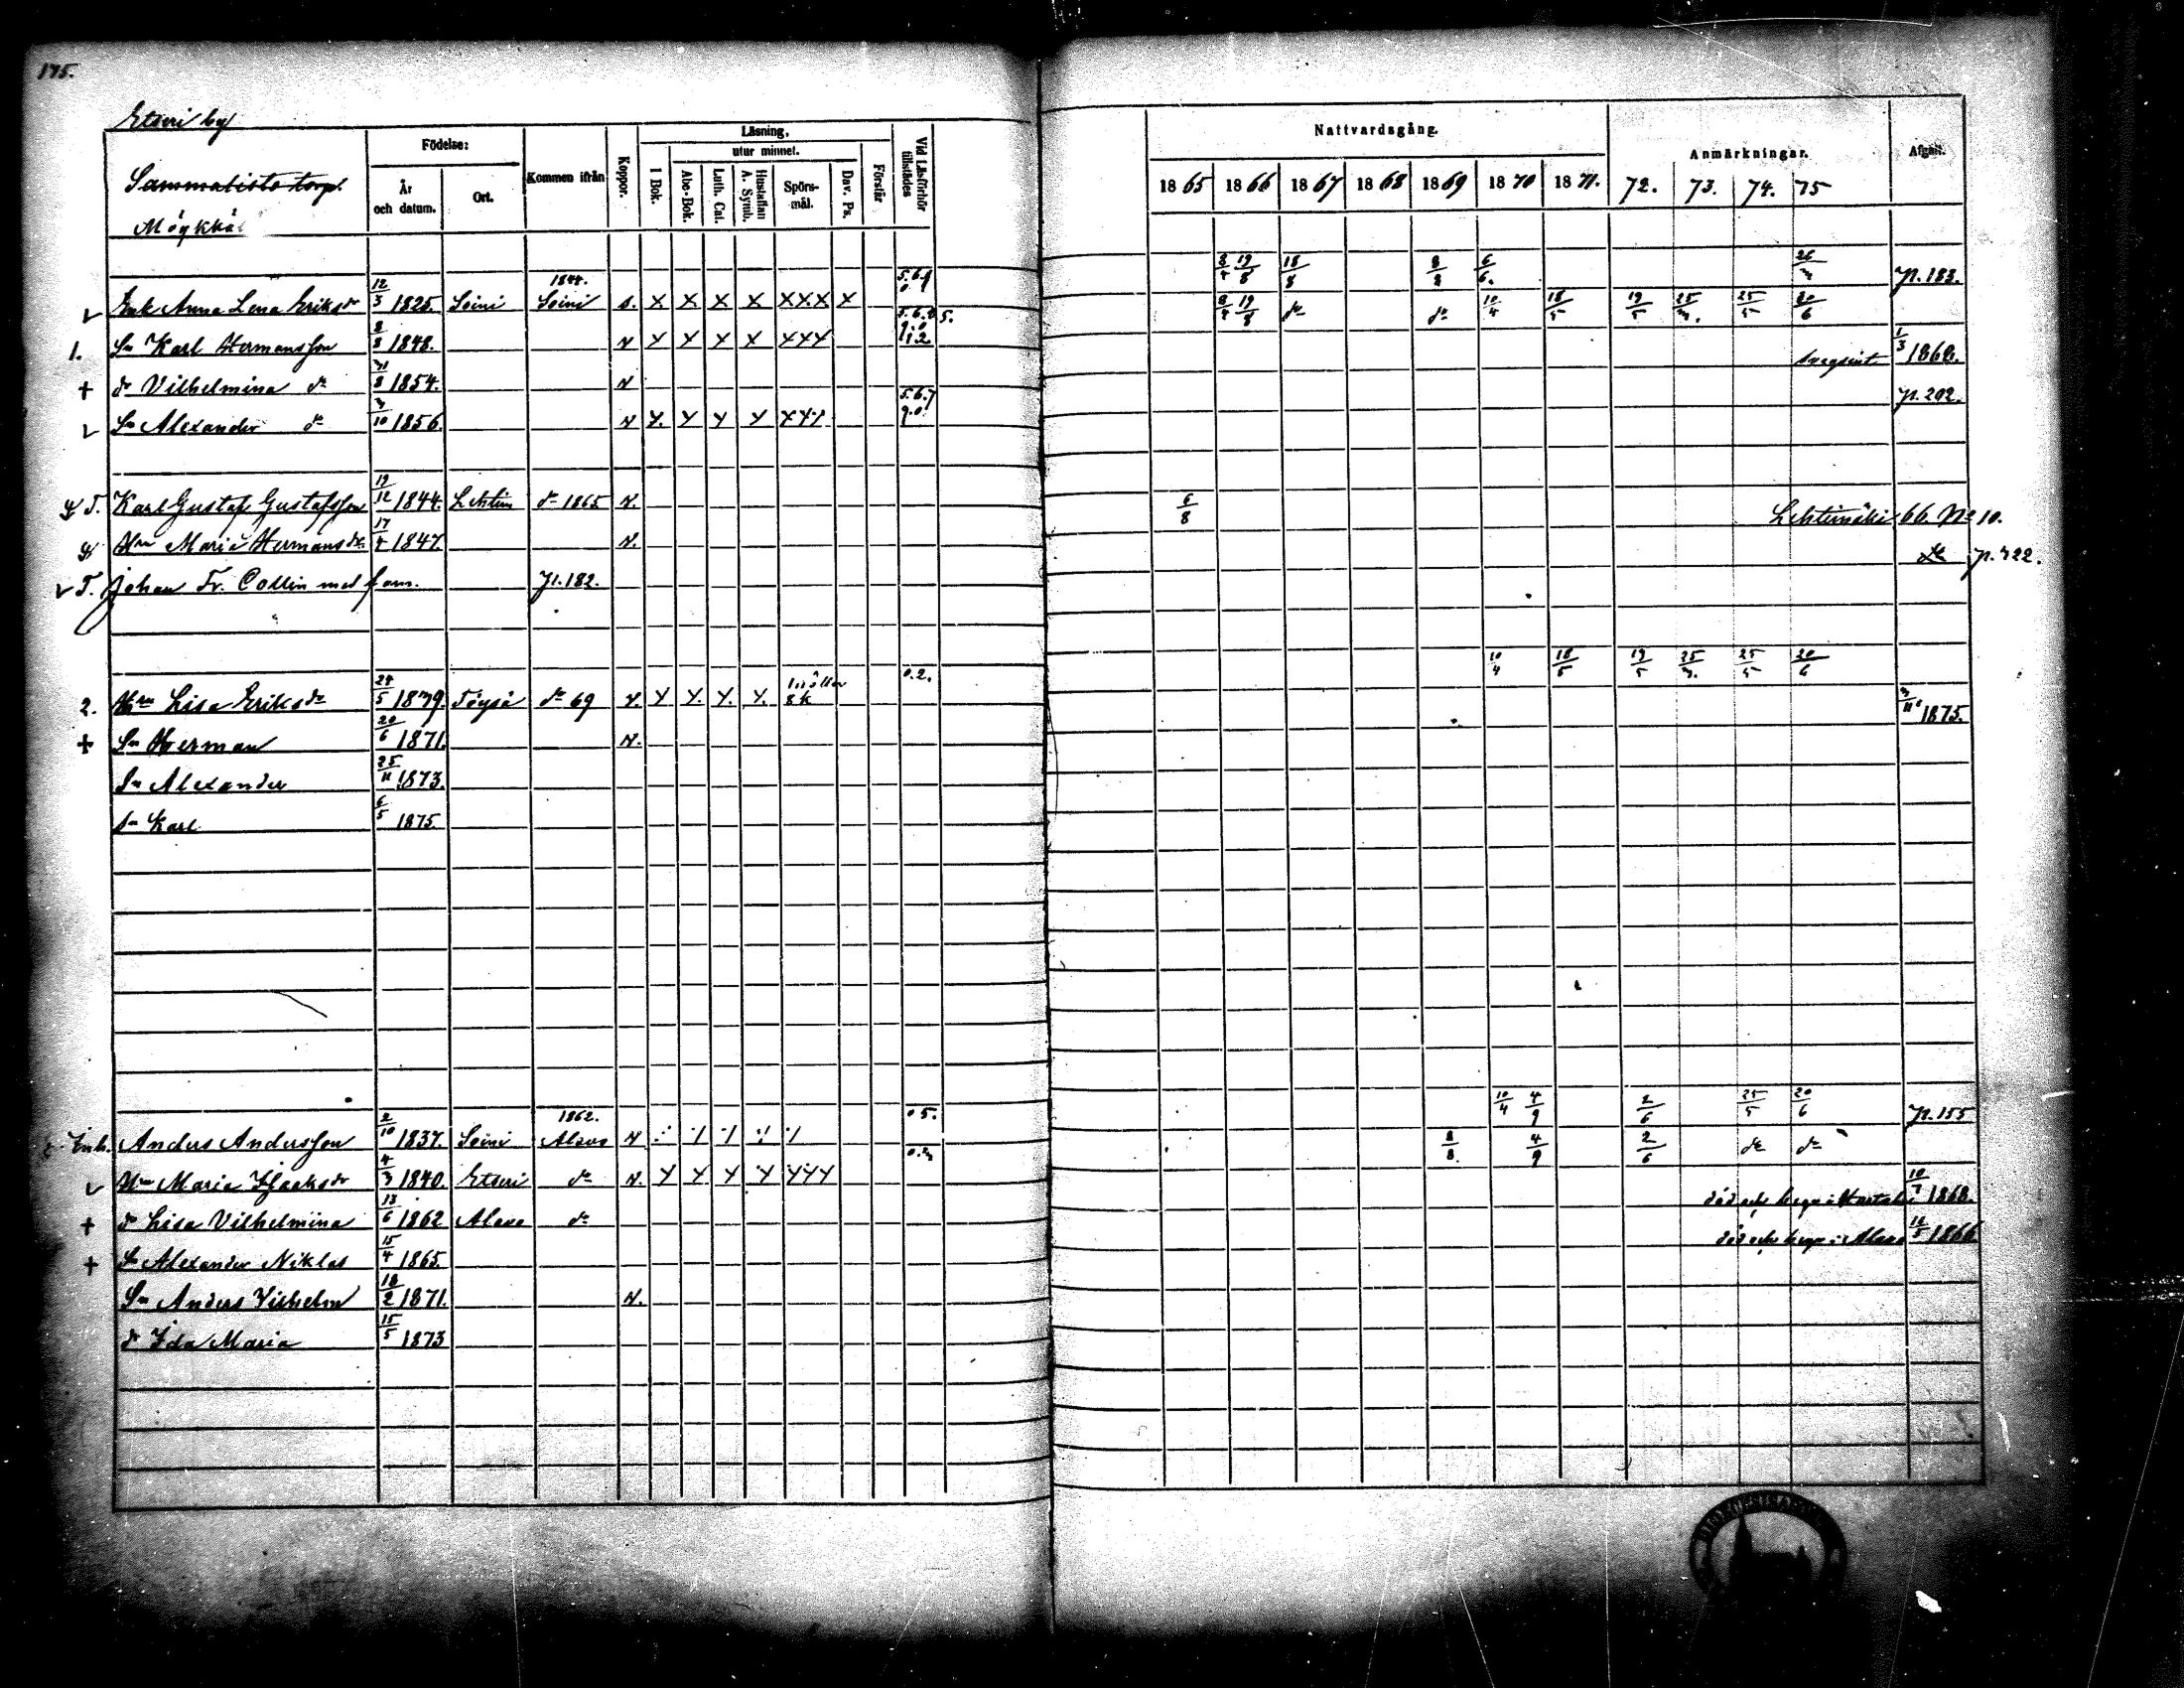 175.
Etseri by
Sammalisto torp.
Möykkä
Födelse:
År och datum.
Ort.
Kommen ifrån
Koppor.
Läsning,
I Bok.
utur minnet.
Abc-Bok.
Luth. Cat.
Hustaflan A. Symb.
Spörsmål.
Dav. Ps.
Förstår
Vid Läsförhör tillstädes
Nattvardsgång.
1865 1866 1867 1868 1869 1870 1871.
Anmärkningar.
72. 73. 74. 75
Afgått.
Enk Anna Lena Eriksdr 12/3 1825. Soini 1844. Soini s. X X X X XXX X 8/4 19/8 18/8 8/8 6/6. p. 183.
1. Sn Karl Hermansson 8/8 1848. N X X X X XXX 8/4 19/8 do do 10/4 18/5 19/5 25/3. 25/5 20/6
+ dr Vilhelmina do 1854. N 1/3 1868.
Sn Alexander do 3/10 1856. N X X X X XXX p. 202.
T. Karl Gustaf Gustafsson 19/12 1844. Lehtim do 1865 N. 6/8 Lehtimäki 66. No 10.
Hru Maria Hermansdr. 17/4 1847. N. do p. 322.
T. Johan Fr. Collin med fam. p. 182.
2. Hru Lisa Eriksdr 24/5 1839. Töysä do 69 N. X X. X. X. 0.2. 10/4 18/5 19/5 25/3. 25/5 20/6
+ Sn Herman 20/6 1871. N. 1875.
Sn Alexander 25/11 1873.
Sn Karl 6/5 1875.
Inh. Anders Andersson 2/10 1837. Soini 1862. Alavo N 0 5. 10/4 4/9 2/6 25/5 20/6 p. 155
Hru Maria Isaaksdr 4/3 1840. Etseri do N. X X X X XXX 8/8. 4/9 2/6 do do
+ dr Lisa Vilhelmina 13/6 1862 Alavo do 10/7 1868.
+ Sn Alexander Niklas 15/4 1865. död och begr: i Alavo 1866
Sn Anders Vilhelm 18/2 1871. N.
dr Ida Maria 15/5 1873